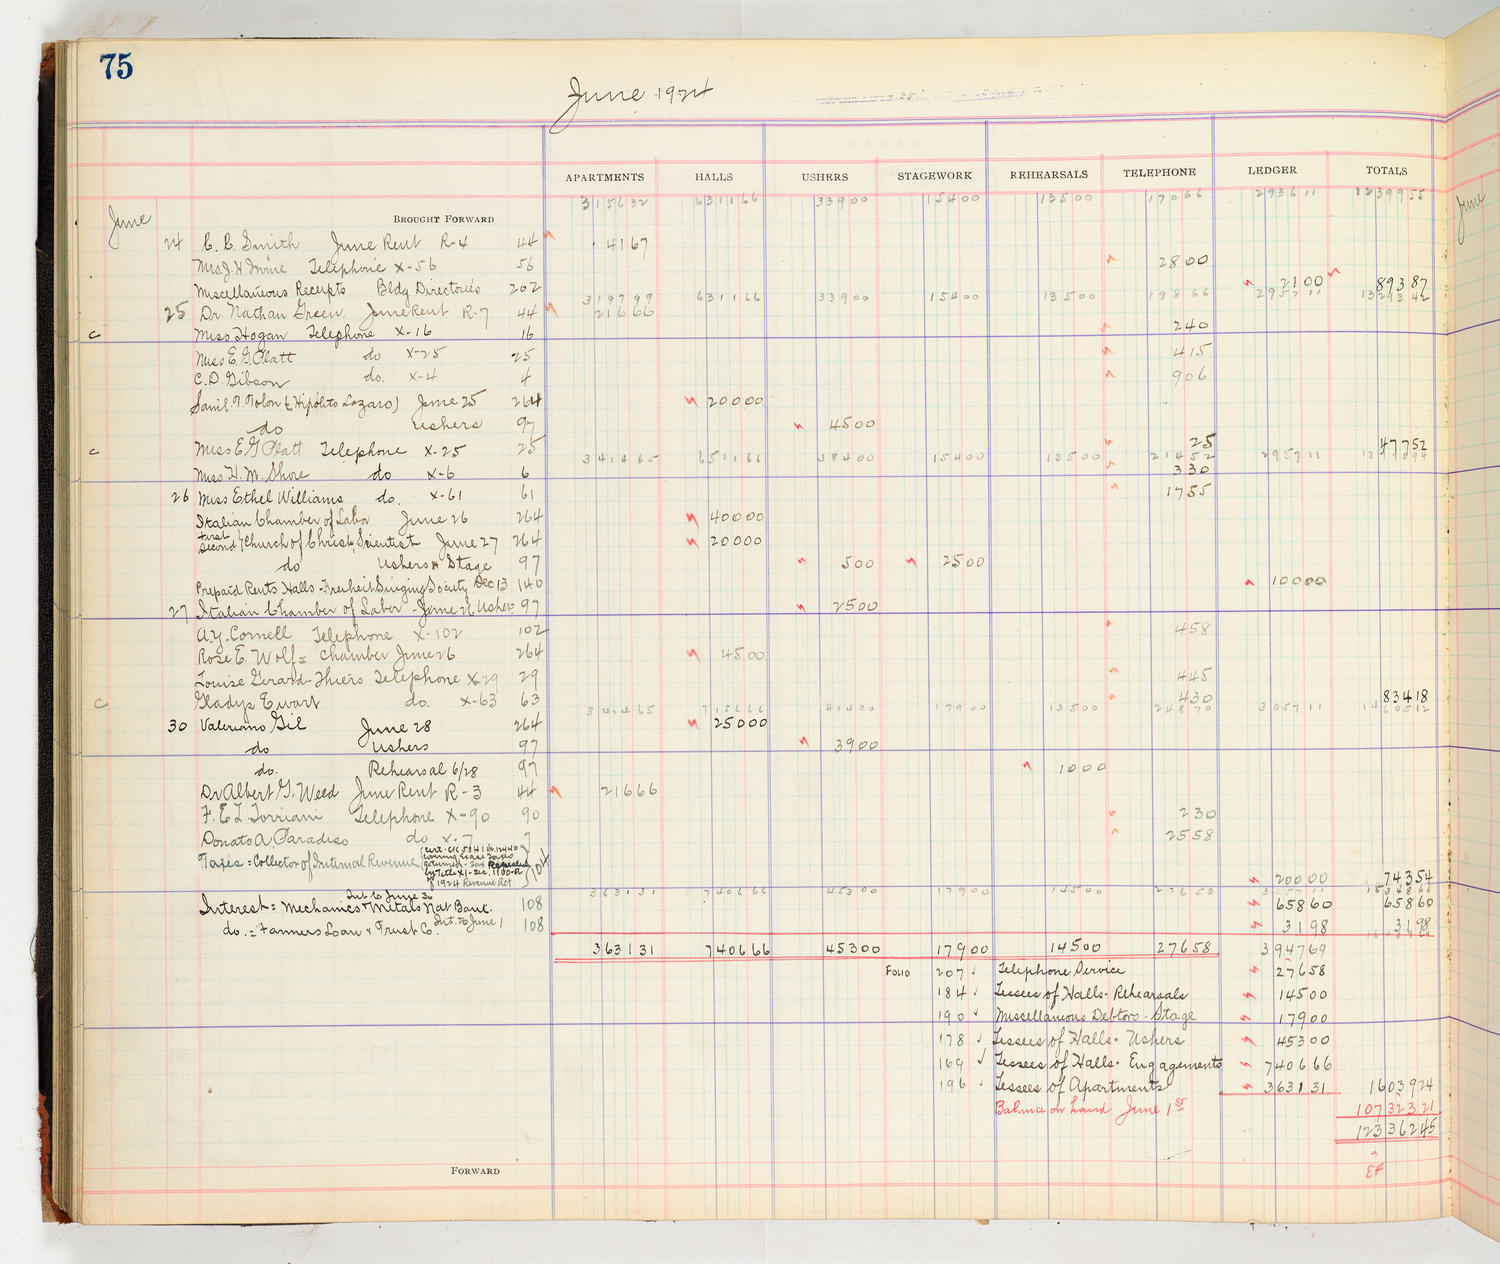 75
June 1924
APARTMENTS HALLS USHERS STAGEWORK REHEARSALS TELEPHONE LEDGER TOTALS
315632 631166 33900 15400 13500 17066 293611 1239955
June BROUGHT FORWARD
24 C. C. Smith June Rent R-4 44 4167
Mrs. J. H. Irvine Telephone X-56 56 2800
Miscellaneous Receipts Bldg Directories 202 2100 89387
319799 631166 33900 15400 13500 19866 295711
25 Dr. Nathan Green. June Rent R-7 44 21666
c Miss Hogan Telephone X-16 16 240
Miss E. G. Platt do X-25 25 415
C. D. Gibson do. X-4 4 906
June 25 264 20000
do ushers 97 4500
c Miss E G Platt Telephone X-25 25 25 47752
341465 651166 38400 15400 13500 21452 295711
Miss H. M. Shore do X-6 6 330
26 Miss Ethel Williams do. X-61 61 1755
Italian Chamber of Labor June 26 264 40000
First Second Church of Christ, Scientist June 27 264 20000
do Ushers & Stage 97 500 2500
Prepaid Rents Halls - Freiheit Singing Society Dec 13 140 10000
27 Italian Chamber of Labor - June 26 Ushers 97 2500
A. Y. Cornell Telephone X-102 102 458
Rose E. Wolf = Chamber June 26 264 4500
Louise Gerard-Thiers Telephone X-29 29 445
c Gladys Ewart do. X-63 63 430 83418
341465 715666 41400 17900 13500 24870 305711 1460512
30 Valeriano Gil June 28 264 25000
do Ushers 97 3900
do. Rehearsal 6/28 97 1000
Dr Albert G. Weed June Rent R-3 44 21666
F. E. L. Torriani Telephone X-90 90 230
Donato A. Paradiso do X-7 7 2558
Taxes = Collector of Internal Revenue 1924 Revenue Act 104 20000 74354
363131 740666 45300 17900 14500 27658
Int. to June 30
Interest = Mechanics & Metals Nat Bank. 108 65860 65860
do. = Farmers Loan & Trust Co. Int. to June 1 108 3198 3198
363131 740666 45300 17900 14500 27658 394769
FOLIO 207 Telephone Service 27658
184 Lessees of Halls - Rehearsals 14500
190 Miscellaneous Debtors - Stage 17900
178 Lessees of Halls - Ushers 45300
169 Lessees of Halls - Engagements 740666
196 Lessees of Apartments 363131 1603924
Balance on hand June 1st 10732321
12336245
FORWARD
June